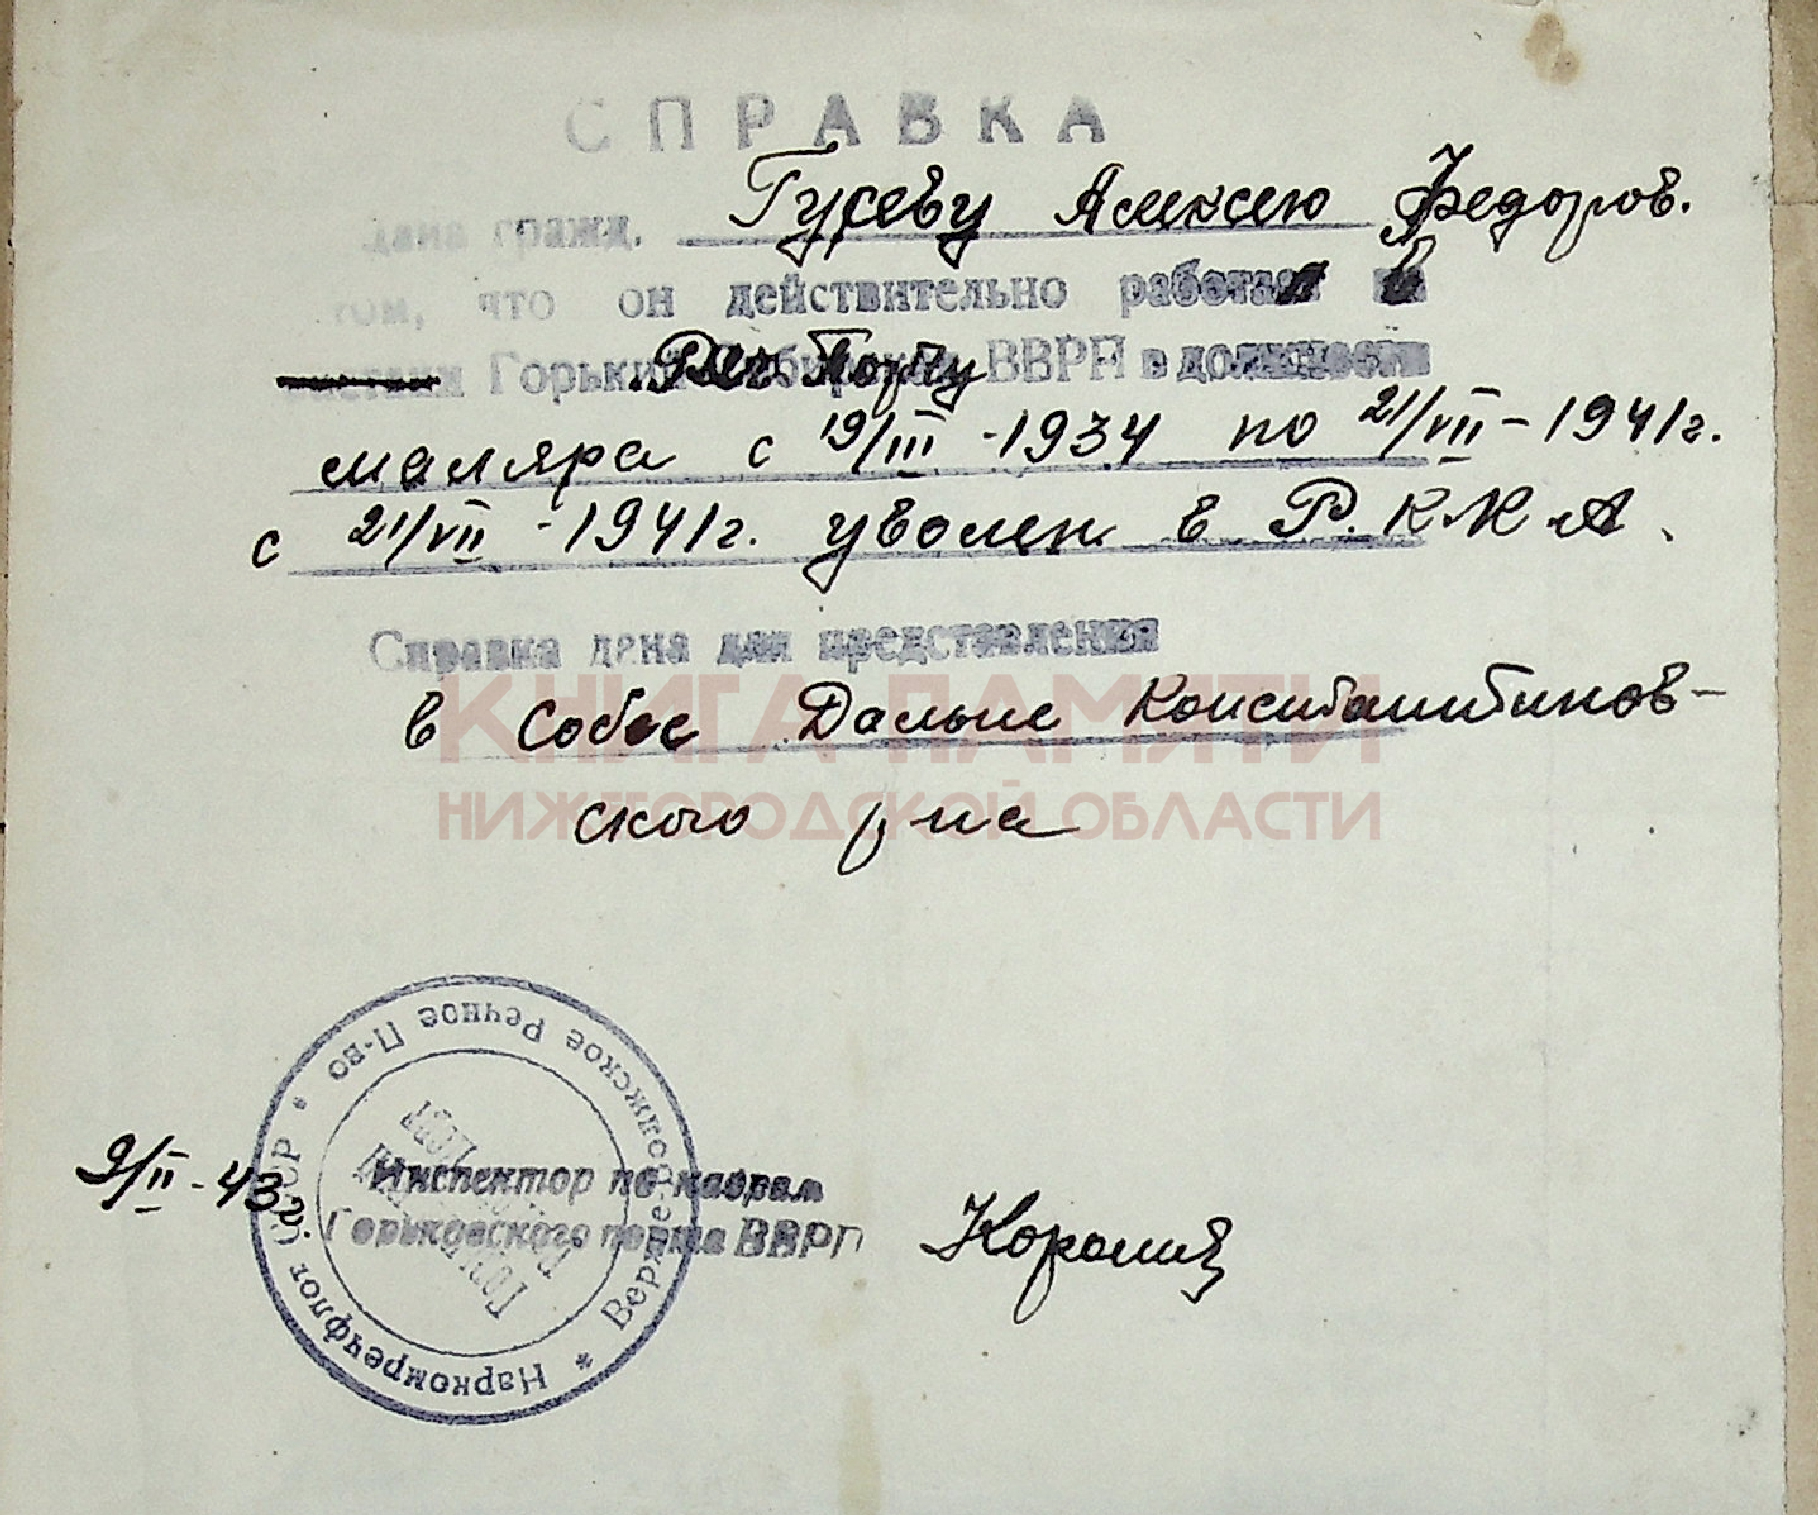 СПРАВКА
дана гражд. Гусеву Алексею Федоров.
том, что он действительно работал в
Горький Реч. Порту ВВРП в должности
маляра с 19/III-1934 по 21/VII-1941г.
с 21/VII-1941г. уволен в Р.К.К.А.
Справка дана для представления
в Собес Дальне Константинов-
ского р-на
КНИГА ПАМЯТИ
НИЖЕГОРОДСКОЙ ОБЛАСТИ
9/II-43г.
Инспектор по кадрам
Горьковского порта ВВРП
Наркомречфлот СССР * Верхневолжское Речное П-во *